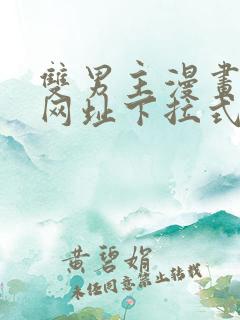 雙男主漫畫
网址下拉式
黄碧娟
未经同意禁止转载